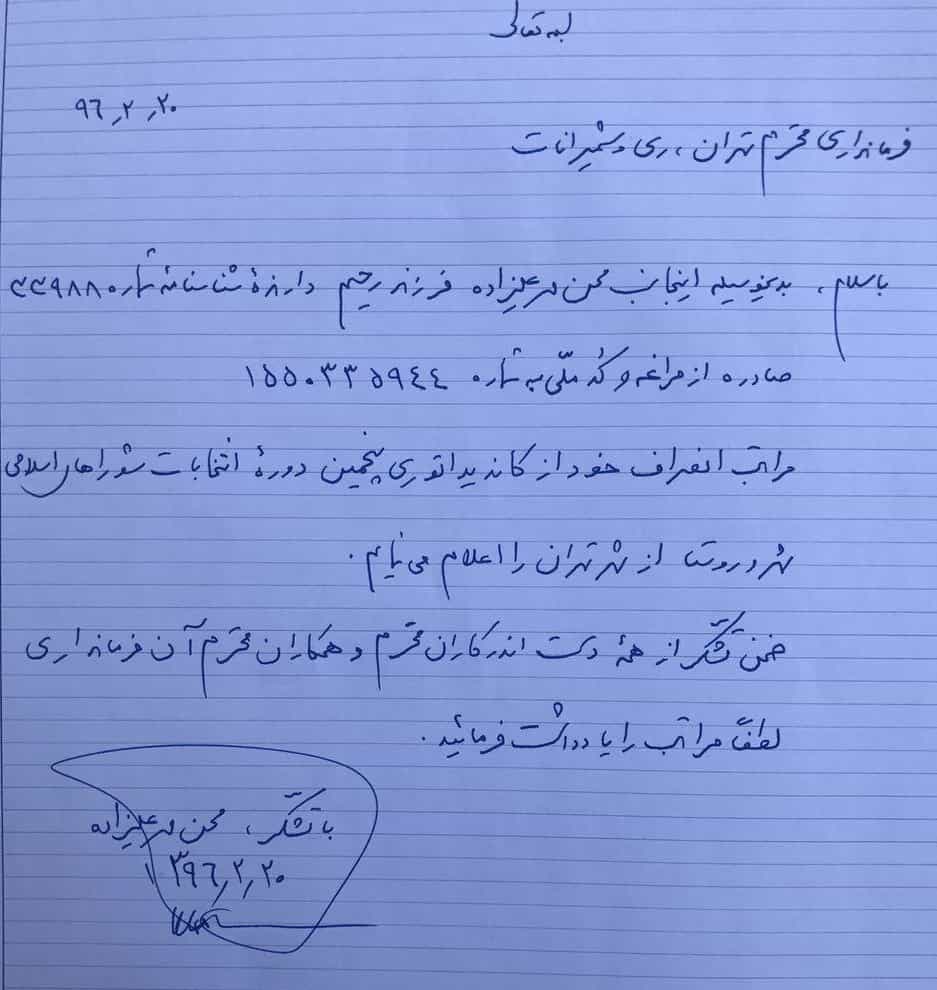 بسمه تعالی
۹۶٫۲٫۲۰
فرمانداری محترم تهران، ری و شمیرانات
با سلام، بدینوسیله اینجانب محسن مهرعلیزاده فرزند رحیم دارندهٔ شناسنامه شماره ۴۴۹۸۸
صادره از مراغه و کُد ملّی به شماره ۱۵۵۰۳۳۵۹۴۴
مراتب انصراف خود از کاندیداتوری پنجمین دورهٔ انتخابات شوراهای اسلامی
شهر و روستا از شهر تهران را اعلام می نمایم.
ضمن تشکّر از همهٔ دست اندرکاران محترم و همکاران محترم آن فرمانداری
لطفاً مراتب را یادداشت فرمائید.
با تشکّر، محسن مهرعلیزاده
۱۳۹۶٫۲٫۲۰